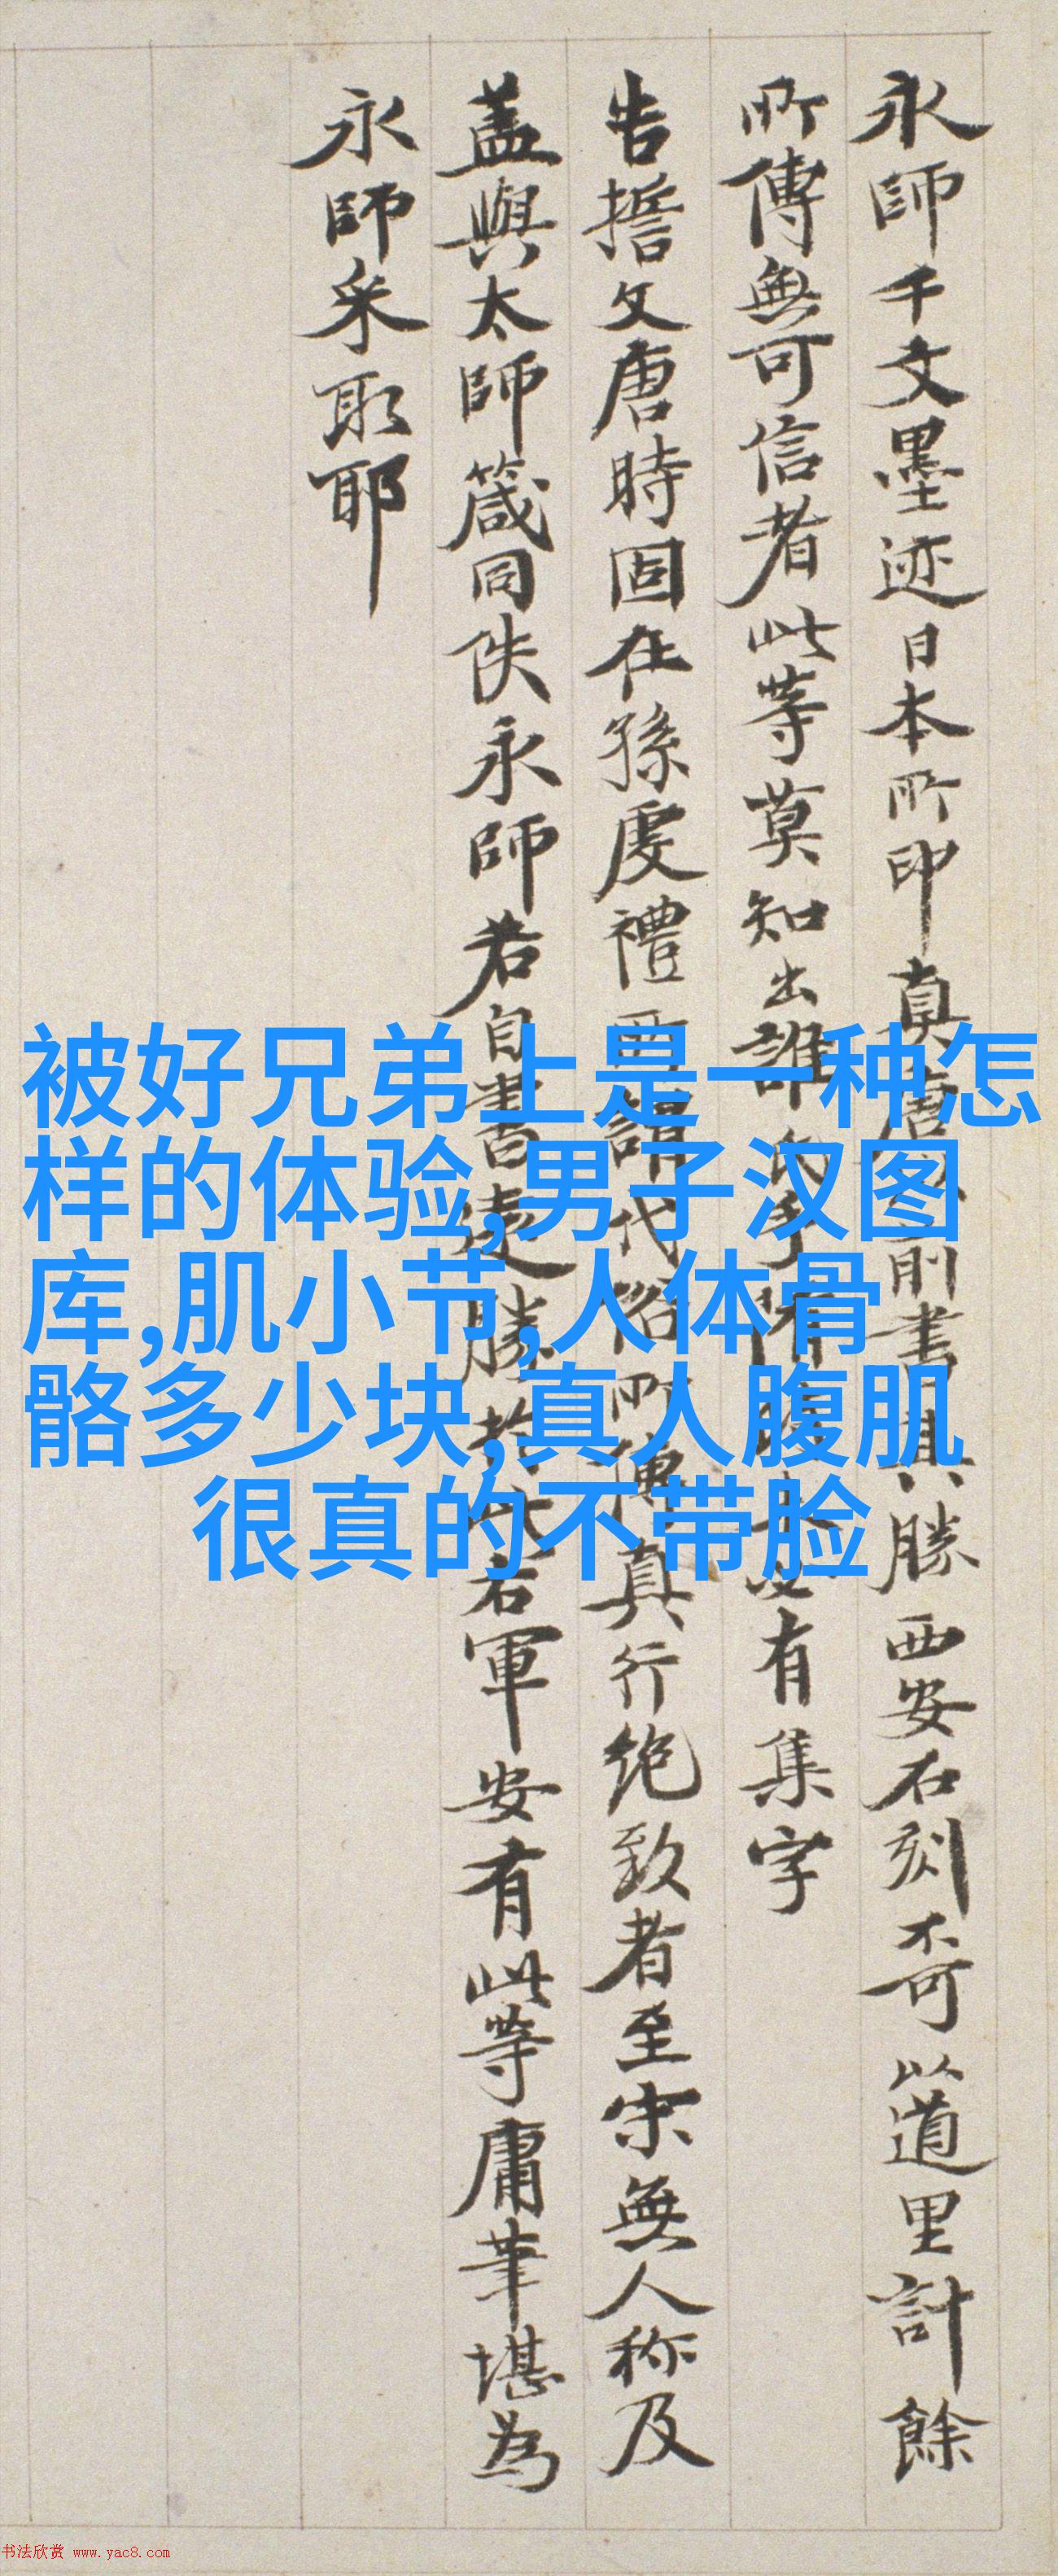 永師千文墨迹日本所印真唐以前書其勝西安石刻不可以道里計餘
所傳無可信者此等莫知出誰氏手有集字
告擔文唐時固在孫虔禮所謂代俗所傳真行绝致者至宋無人称及
盖與太師箴同佚永師若自書遠勝於此右軍安有此等庸筆堪為
永師采取耶
被好兄弟上是一种怎
样的体验,男子汉图
库,肌小节,人体骨
骼多少块,真人腹肌
很真的不带脸
书法欣赏 www.yac8.com